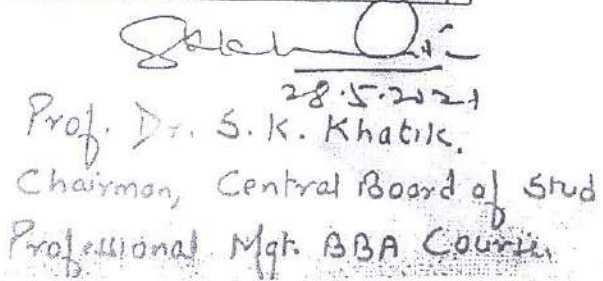 28.5.2021
Prof. Dr. S. K. Khatik.
Chairman, Central Board of Stud
Professional Mgt. BBA Course.